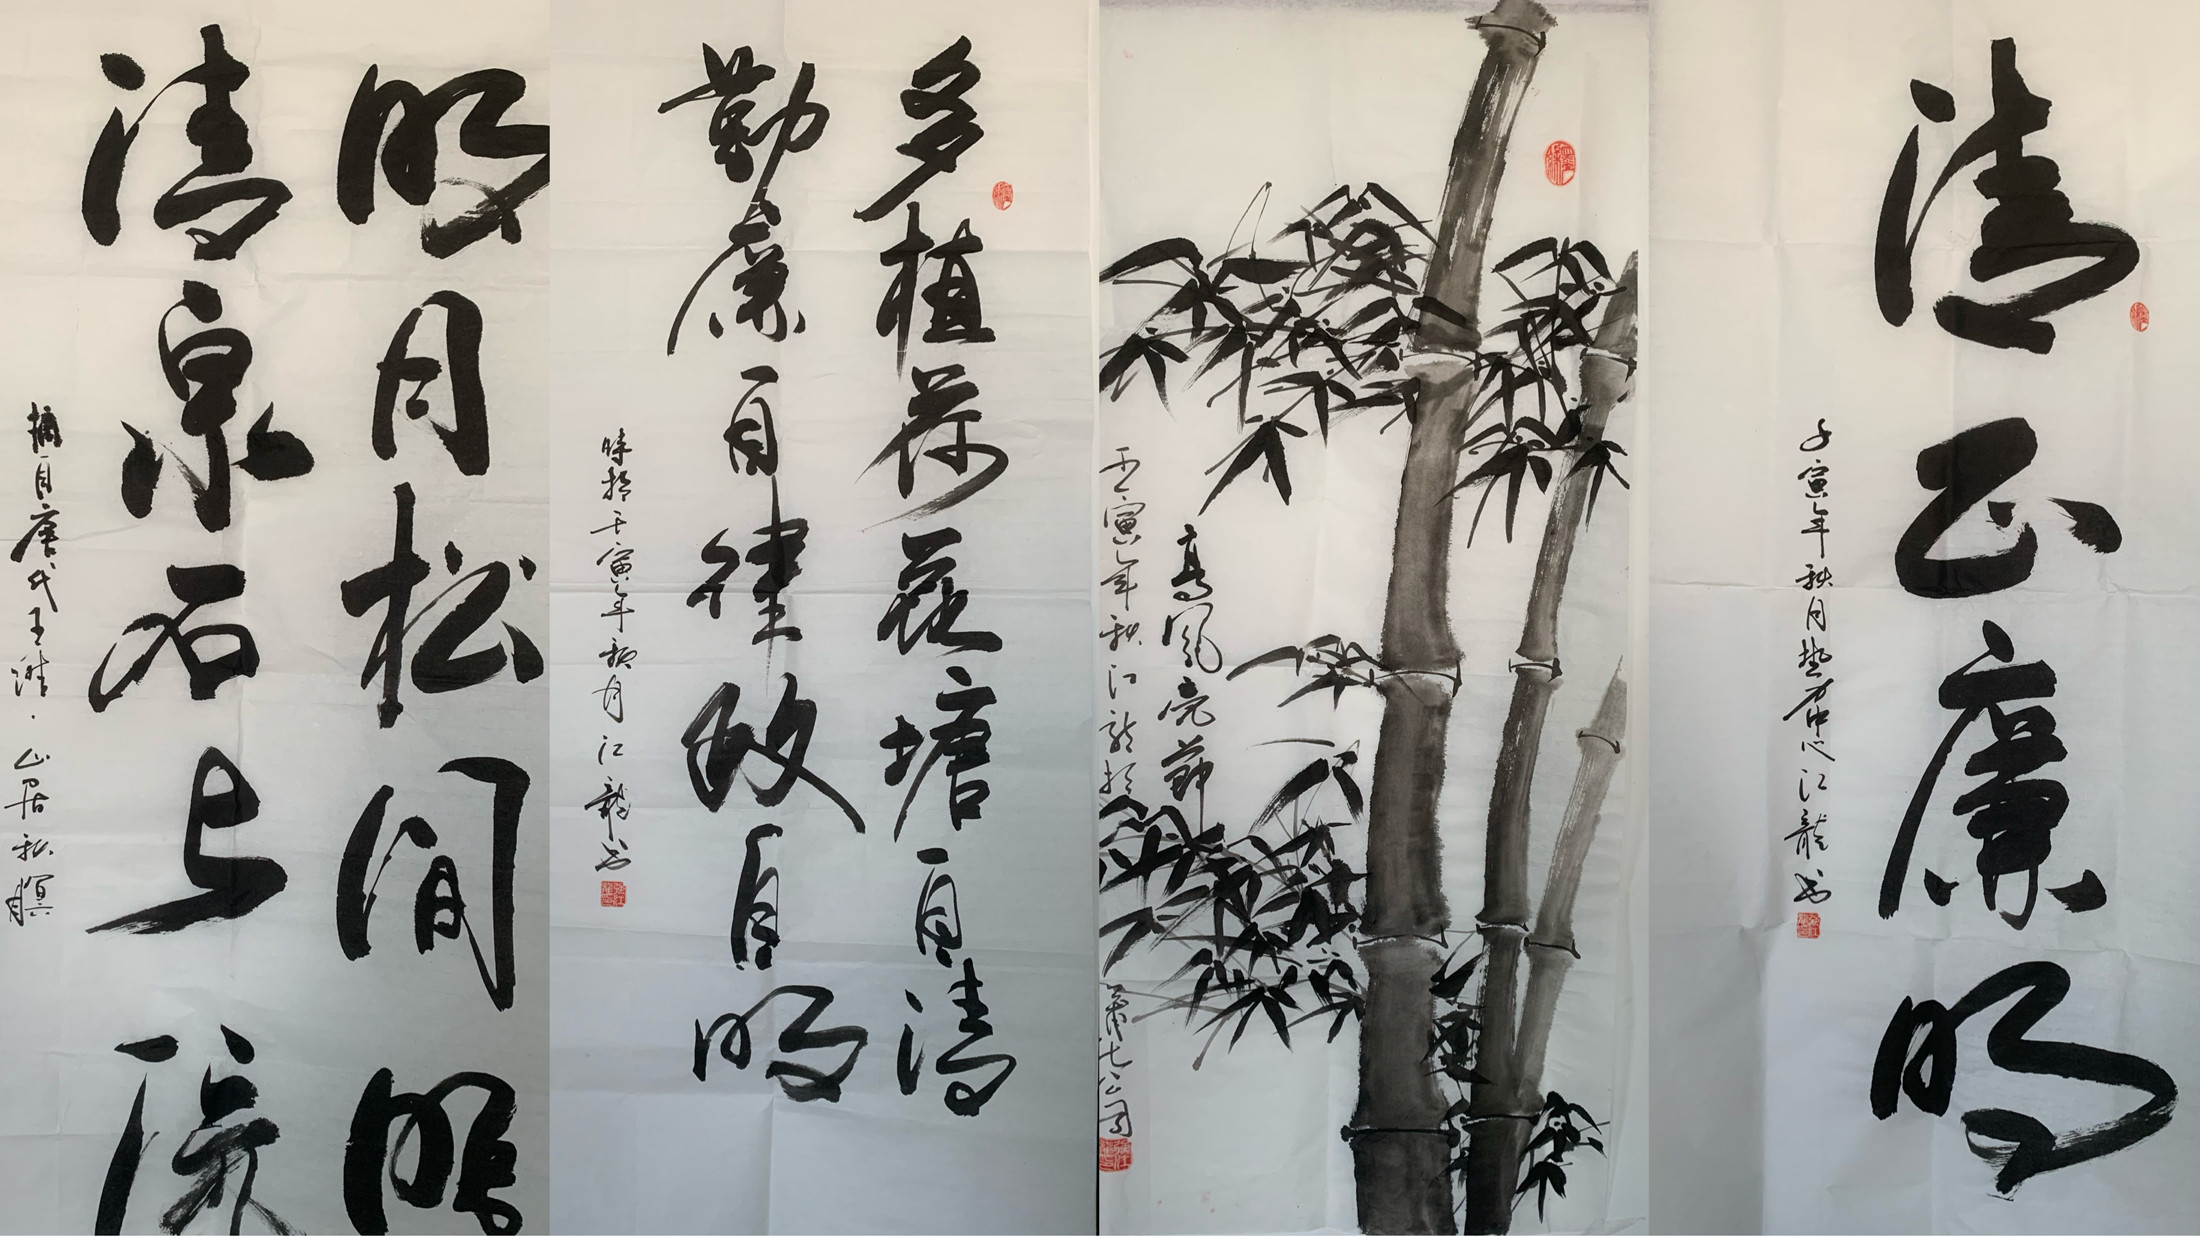 明月松间照
清泉石上流
摘自唐代王维·山居秋暝
多植荷花塘自清
勤廉自律政自明
时于壬寅年秋月江龙书
高风亮节
壬寅年秋江龙于
清正廉明
壬寅年秋月垫府中心江龙书